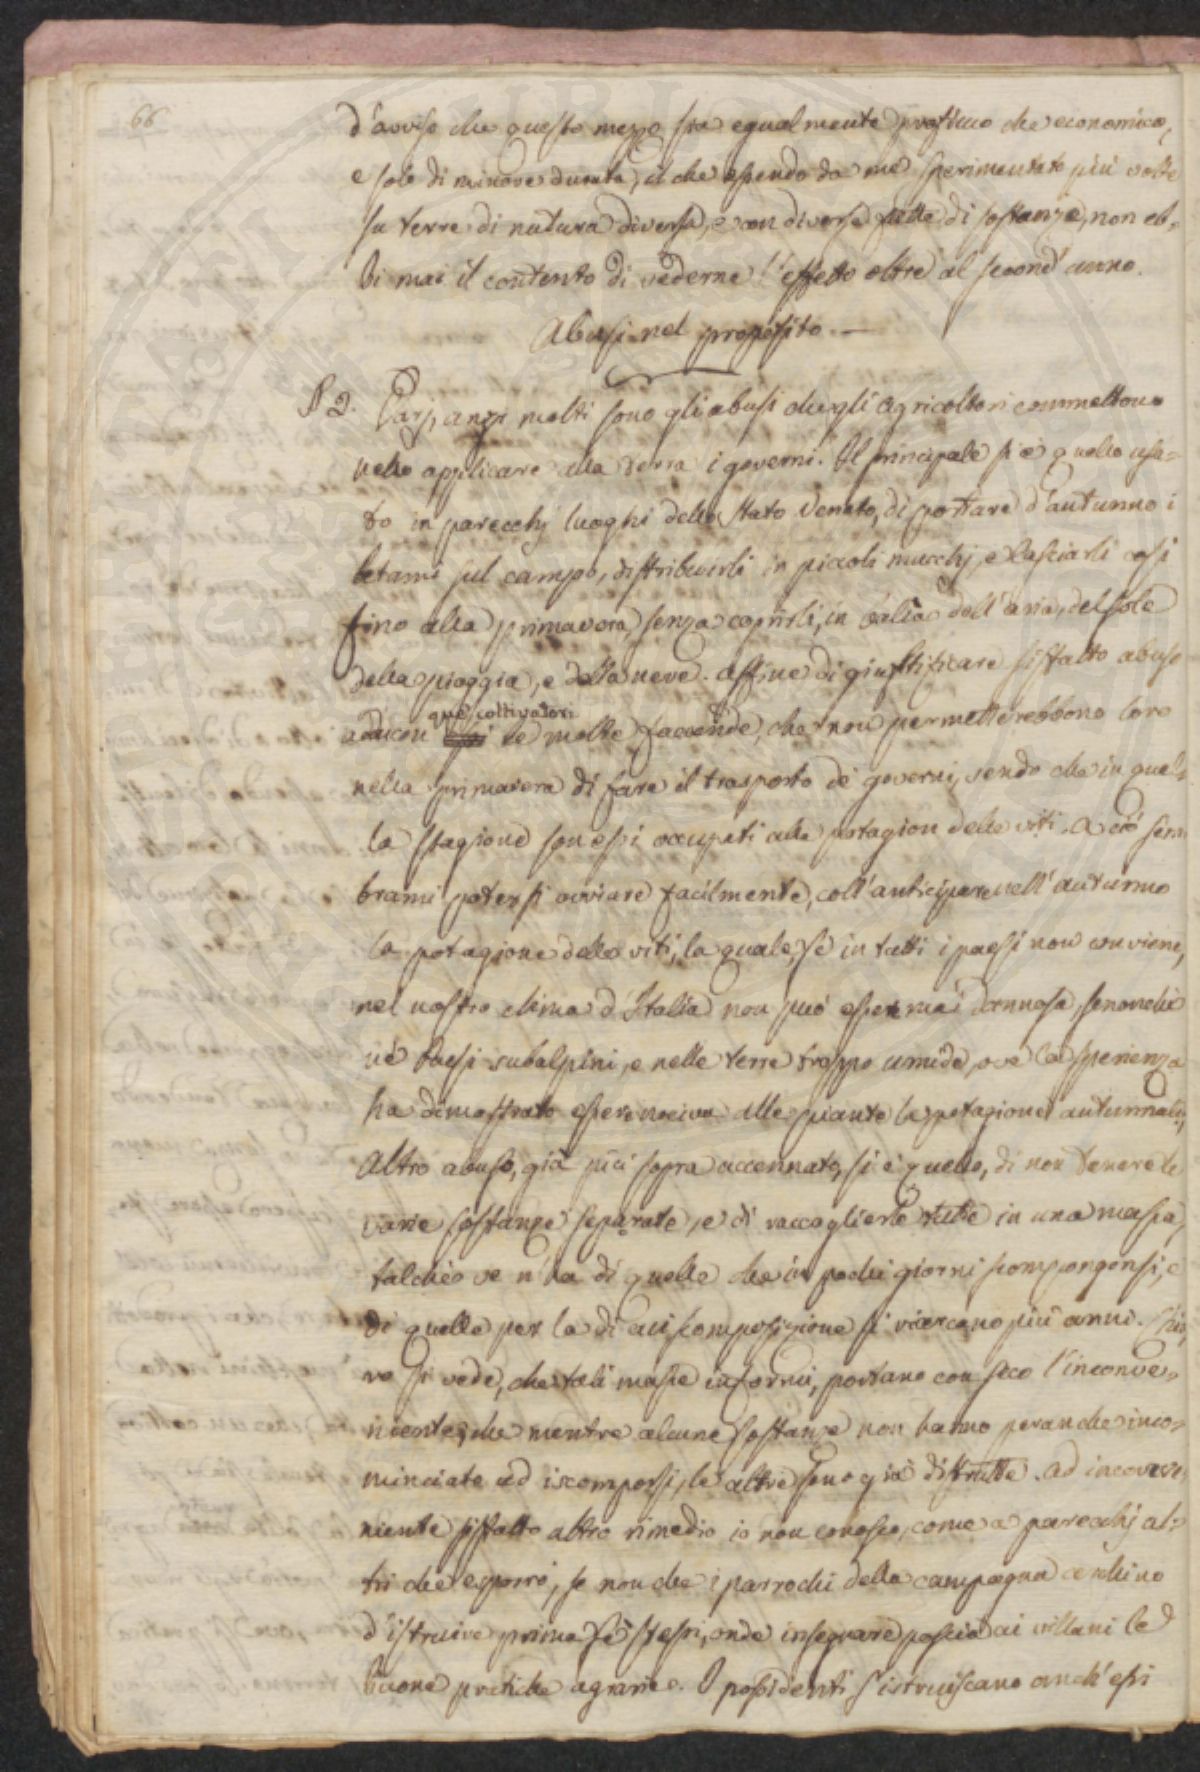 66
d'avviso che questo mezzo sia egualmente proficuo che economico,
e solo di minore durata, il che essendo da me sperimentato più volte
su terre di natura diversa, e con diverse fatte di sostanze, non eb-
bi mai il contento di vederne l'effetto oltre al second' anno.
Abusi nel proposito. —
§ 2. Varj, anzi molti sono gli abusi che gli agricoltori commettono
nello applicare alla terra i governi. Il principale si è quello usa-
to in parecchj luoghi dello Stato Veneto, di portare d'autunno i
letami sul campo, distribuirli in piccoli mucchj, e lasciarli così
fino alla primavera, senza coprirli, in balia dell'aria, del sole
della pioggia, e della neve. Affine di giustificare siffatto abuso
que' coltivatori
adducon le molte faccende, che non permetterebbono loro
nella primavera di fare il trasporto de' governi, sendo che in quel-
la stagione son essi occupati alla potagion delle viti. A ciò sem
brami potersi ovviare facilmente, coll'anticipare nell'autunno
la potagione delle viti, la quale, se in tutti i paesi non conviene,
nel nostro clima d'Italia non può essere mai dannosa, senonchè
ne' Paesi subalpini, e nelle terre troppo umide, ove la sperienza
ha dimostrato essere nociva alle piante la potagione autunnale.
Altro abuso, già più sopra accennato, si è quello, di non tenere le
varie sostanze separate, e di raccoglierle tutte in una massa,
talchè ve n'ha di quelle che in pochi giorni scompongonsi, e
di quelle per la di cui scomposizione si ricercano più anni. Chia
ro si vede, che tali masse informi, portano con seco l'inconve-
niente, che mentre alcune sostanze non hanno peranche inco-
minciate ad iscomporsi, le altre sono già distrutte. Ad inconve
niente siffatto altro rimedio io non conosco, come a parecchj al-
tri che esporrò, se non che i parrochi della campagna cerchino
d'istruire prima se stessi, onde insegnare poscia ai villani le
buone pratiche agrarie. I possidenti s'istruiscano anch'essi